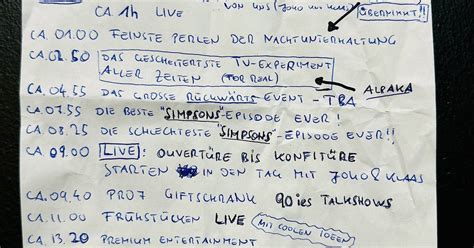 VON UNS (JOKO UND KLAAS)
ÜBERNIMMT!!
CA. 1h LIVE
CA. 01.00 FEINSTE PERLEN DER NACHTUNTERHALTUNG
CA. 02.50 DAS GESCHEITERTSTE TV-EXPERIMENT
ALLER ZEITEN (FOR REAL)
ALPAKA
CA. 04.55 DAS GROSSE RÜCKWÄRTS EVENT - TBA
CA. 07.55 DIE BESTE "SIMPSONS"-EPISODE EVER!
CA. 08.25 DIE SCHLECHTESTE "SIMPSONS"-EPISODE EVER!!
CA. 09.00 LIVE: OUVERTÜRE BIS KONFITÜRE
STARTEN IN DEN TAG MIT JOKO & KLAAS
CA. 09.40 PRO7 GIFTSCHRANK 90ies TALKSHOWS
CA. 11.00 FRÜHSTÜCKEN LIVE (MIT COOLEN IDEEN)
CA. 13.20 PREMIUM ENTERTAINMENT